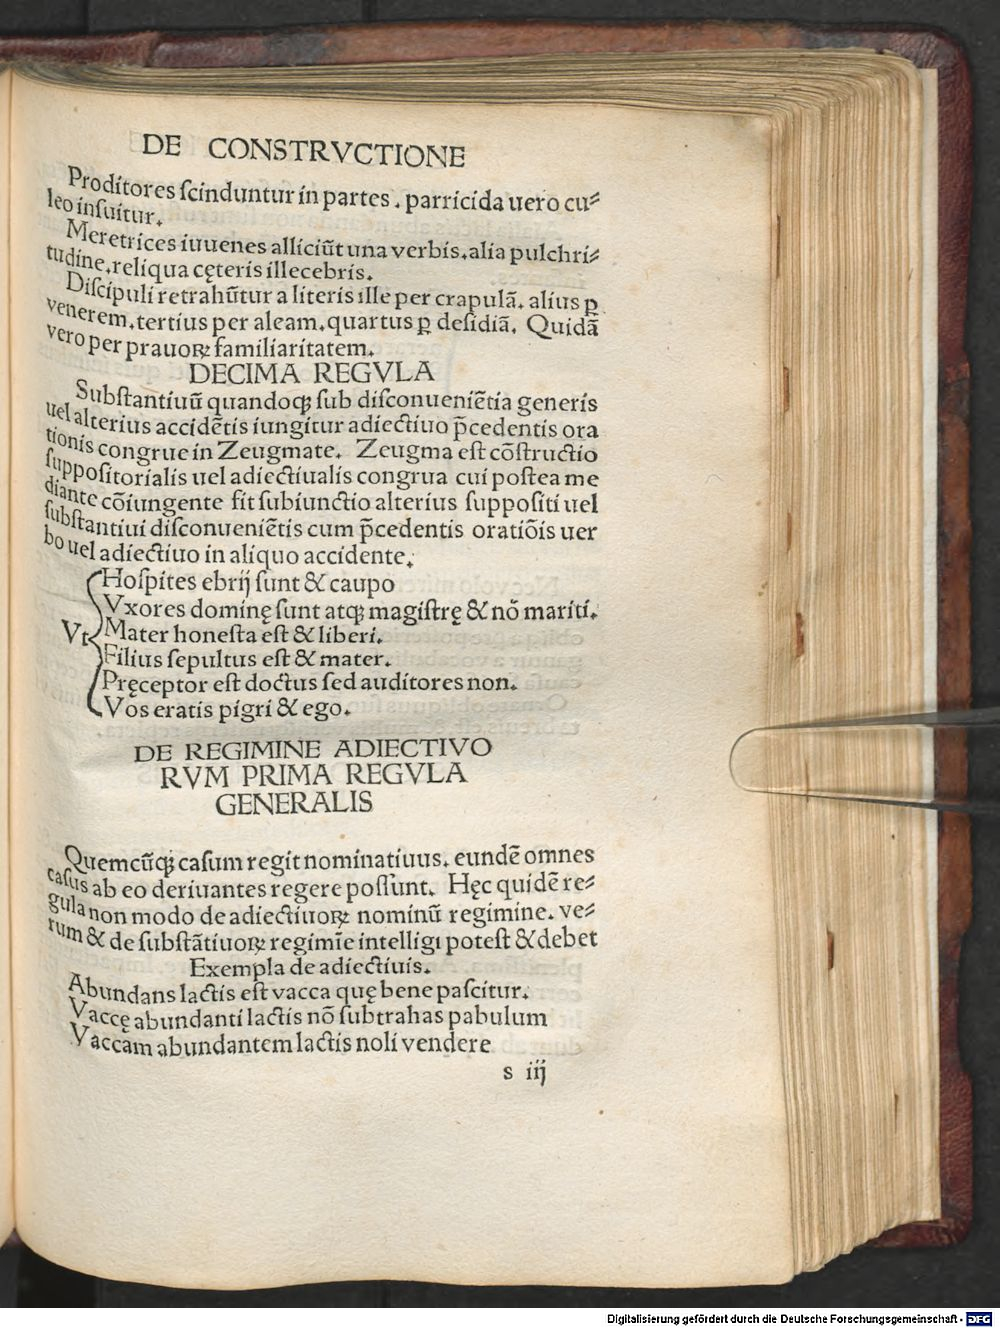 DE CONSTRVCTIONE
Proditores ſcinduntur in partes . parricida uero cu⸗
leo inſuitur.
Meretrices iuuenes alliciũt una verbis. alia pulchri⸗
tudine. reliqua cęteris illecebris.
Diſcipuli retrahũtur a literis ille per crapulã. alius ꝑ
venerem. tertius per aleam. quartus ꝑ deſidiã. Quidã
vero per prauoꝝ familiaritatem.
DECIMA REGVLA
Subſtantiuũ quandoqꝫ ſub diſconueniẽtia generis
uel alterius accidẽtis iungitur adiectiuo p̃cedentis ora
tionis congrue in Zeugmate. Zeugma eſt cõſtructio
ſuppoſitorialis uel adiectiualis congrua cui poſtea me
diante cõiungente fit ſubiunctio alterius ſuppoſiti uel
ſubſtantiui diſconueniẽtis cum p̃cedentis oratiõis uer
bo uel adiectiuo in aliquo accidente.
Hoſpites ebrij ſunt & caupo
Vxores dominę ſunt atqꝫ magiſtrę & nõ mariti.
Vt Mater honeſta eſt & liberi.
Filius ſepultus eſt & mater.
Pręceptor eſt doctus ſed auditores non.
Vos eratis pigri & ego.
DE REGIMINE ADIECTIVO
RVM PRIMA REGVLA
GENERALIS
Quemcũqꝫ caſum regit nominatiuus. eundẽ omnes
caſus ab eo deriuantes regere poſſunt. Hęc quidẽ re⸗
gula non modo de adiectiuoꝝ nominũ regimine. ve⸗
rum & de ſubſtãtiuoꝝ regimĩe intelligi poteſt & debet
Exempla de adiectiuis.
Abundans lactis eſt vacca quę bene paſcitur.
Vaccę abundanti lactis nõ ſubtrahas pabulum
Vaccam abundantem lactis noli vendere
s iij
Digitalisierung gefördert durch die Deutsche Forschungsgemeinschaft - DFG